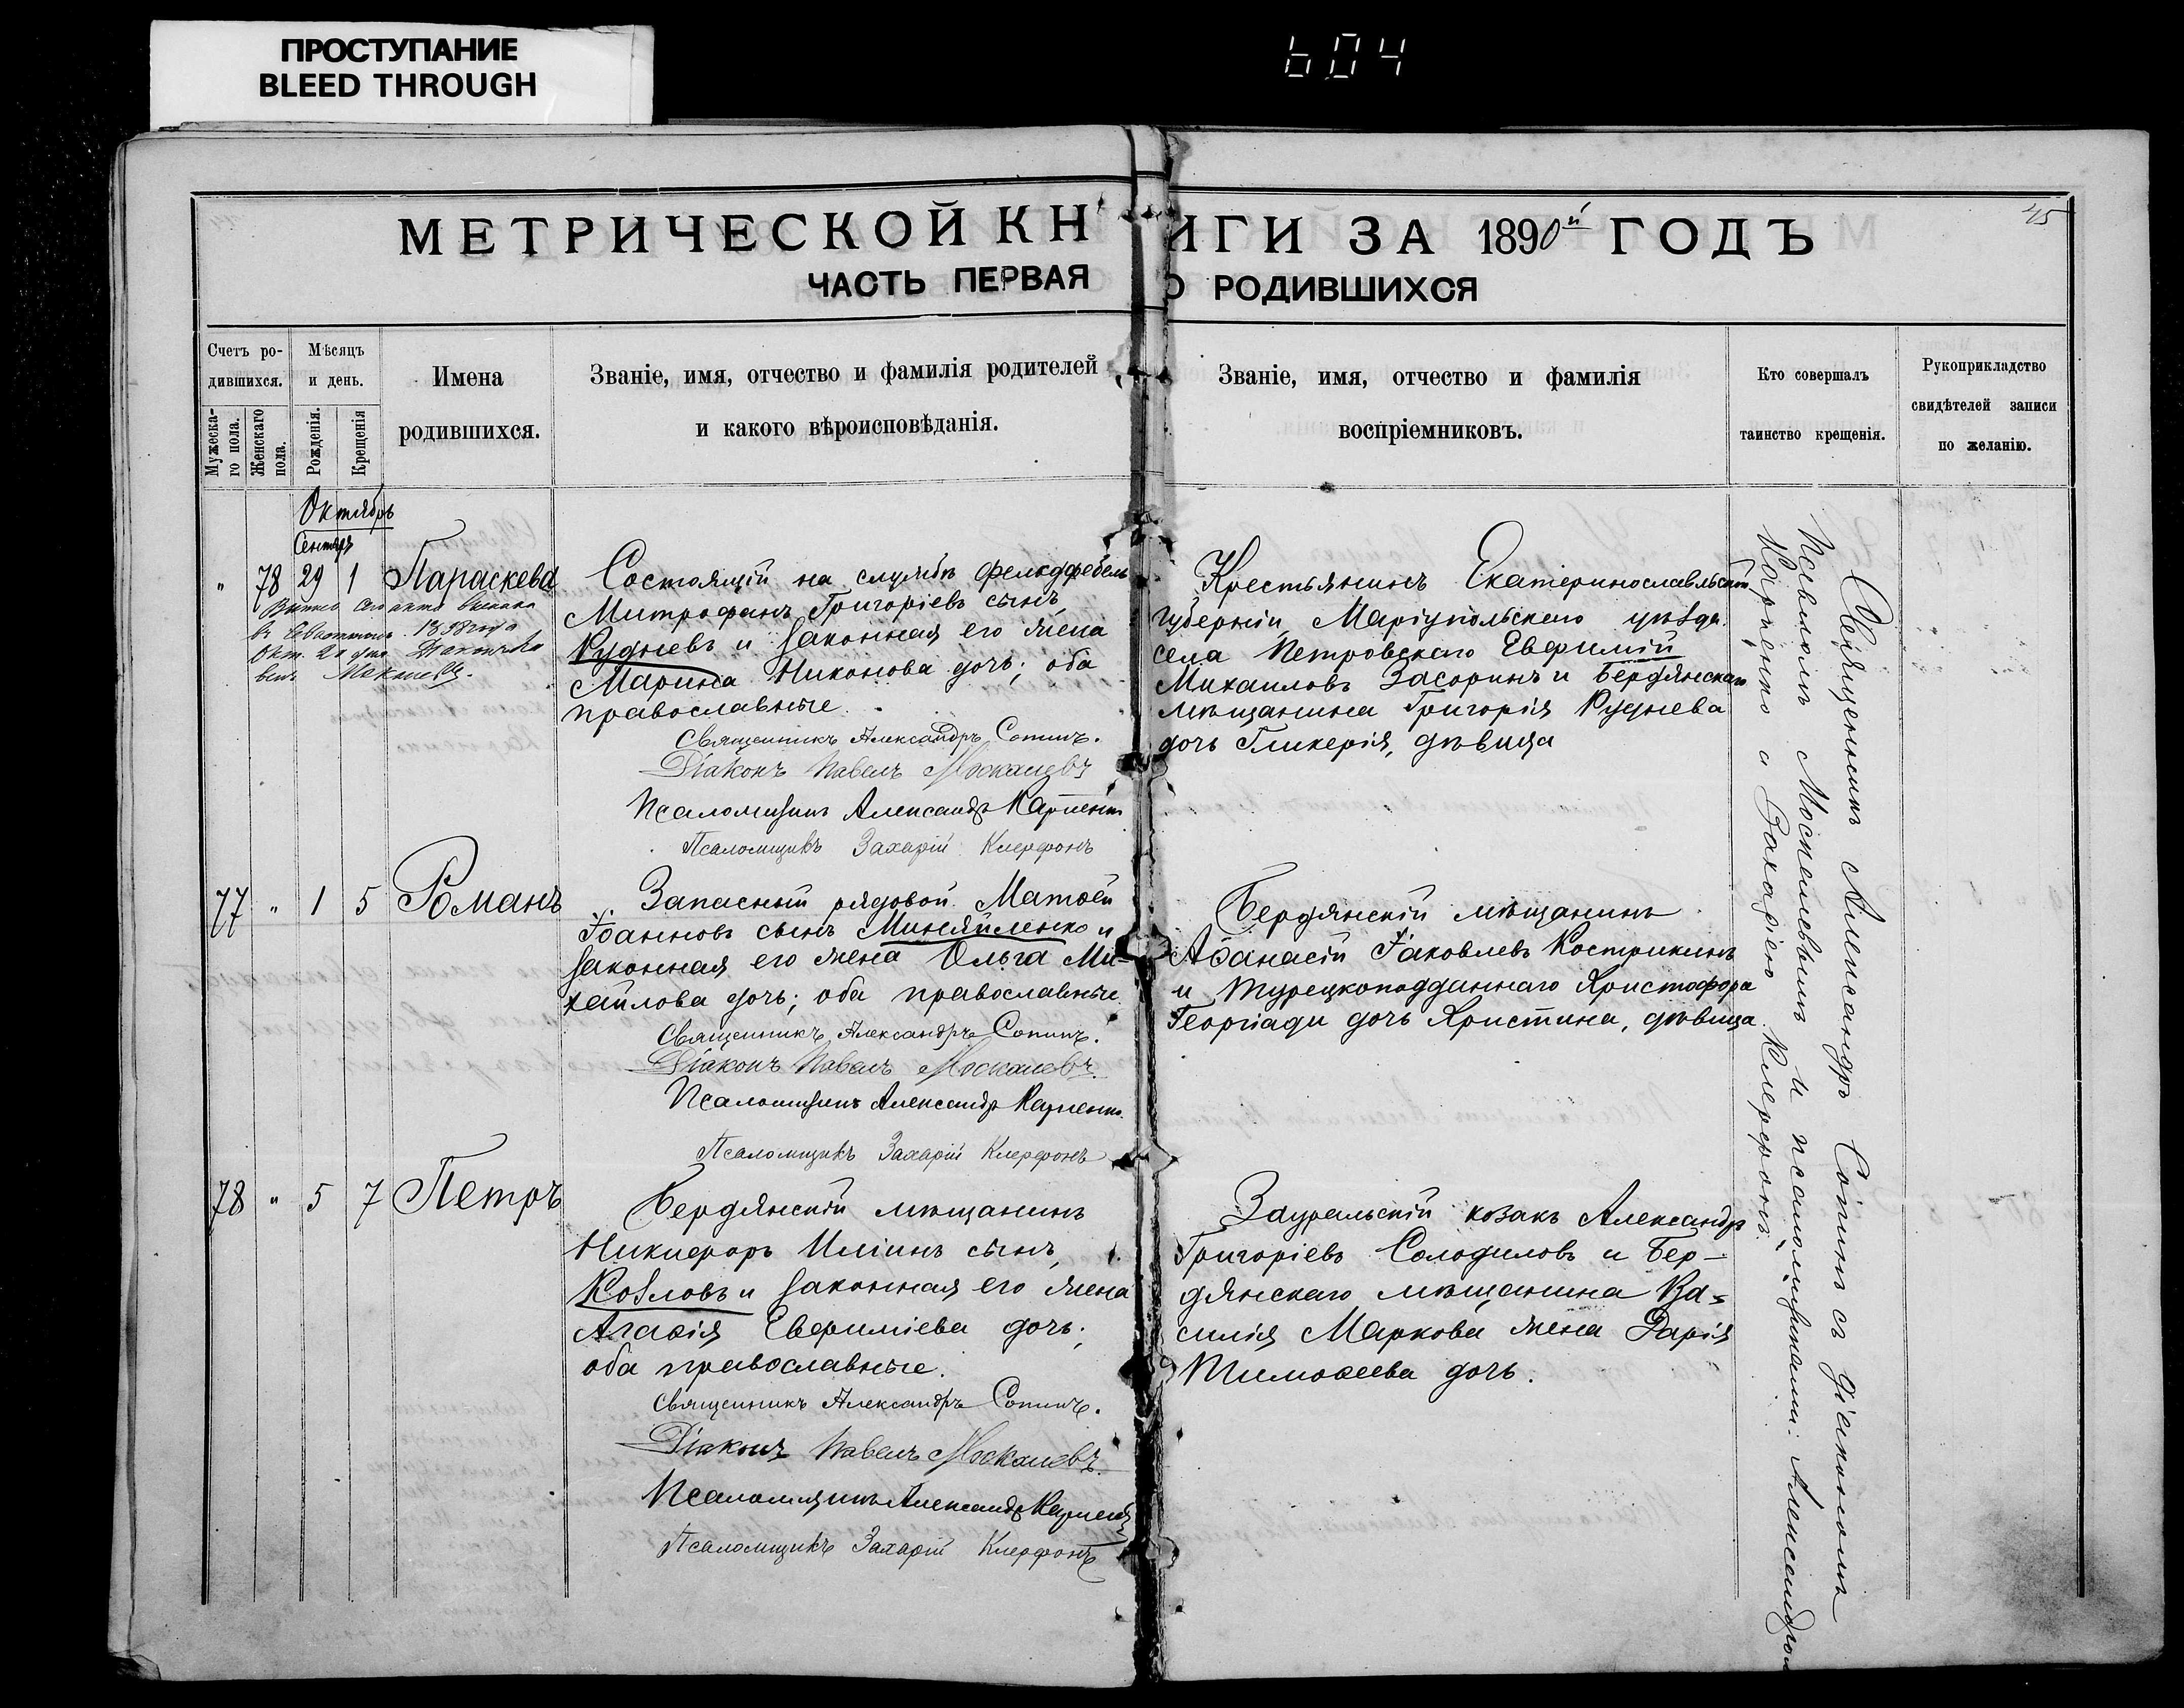 ПРОСТУПАНИЕ
BLEED THROUGH
604
45
МЕТРИЧЕСКОЙ КНИГИ ЗА 1890й ГОДЪ
ЧАСТЬ ПЕРВАЯ О РОДИВШИХСЯ
Счетъ ро-
дившихся.
Мужеска-
го пола.
Женскаго
пола.
Мѣсяцъ
и день.
Рожденія.
Крещенія
Имена
родившихся.
Званіе, имя, отчество и фамилія родителей
и какого вѣроисповѣданія.
Званіе, имя, отчество и фамилія
воспріемниковъ.
Кто совершалъ
таинство крещенія.
Рукоприкладство
свидѣтелей записи
по желанію.
Октябрь
Сентябр
" 78 29 1 Параскева
Состоящій на службѣ фельдфебель
Митрофанъ Григоріевъ сынъ
Рудневъ и законная его жена
Марина Никонова дочь; оба
православные.
Священникъ Александръ Сопинъ.
Діаконъ Павелъ Москалевъ
Псаломщикъ Александръ Карпенко
Псаломщикъ Захарій Клерфонъ
Крестьянинъ Екатеринославльской
губерніи, Маріупольскаго уѣзда.
села Петровскаго Евфимій
Михаиловъ Засоринъ и Бердянскаго
мѣщанина Григорія Руднева
дочь Гликерія, дѣвица
77 " 1 5 Романъ
Запасный рядовой Матѳей
Іоанновъ сынъ Миняйленко и
законная его жена Ольга Ми-
хайлова дочь; оба православные
Священникъ Александръ Сопинъ.
Діаконъ Павелъ Москалевъ.
Псаломщикъ Александръ Карпенко.
Псаломщикъ Захарій Клерфонъ
Бердянскій мѣщанинъ
Аѳанасій Іаковлевъ Кострикинъ
и Турецкоподданнаго Христофора
Георгіади дочь Христина, дѣвица
78 " 5 7 Петръ
Бердянскій мѣщанинъ
Никифоръ Иліинъ сынъ
Козловъ и законная его жена
Агаѳія Евфиміева дочь;
оба православные.
Священникъ Александръ Сопинъ.
Діаконъ Павелъ Москалевъ.
Псаломщикъ Александръ Карпенко
Псаломщикъ Захарій Клерфонъ
Зауральскій козакъ Александръ
Григоріевъ Солодиловъ и Бер-
дянскаго мѣщанина Ва-
силія Маркова жена Дарія
Тимоѳеева дочь.
Священникъ Александръ Сопинъ съ діакономъ
Павломъ Москалевымъ и псаломщиками: Александромъ
Карпенко и Захаріею Клерфонъ.